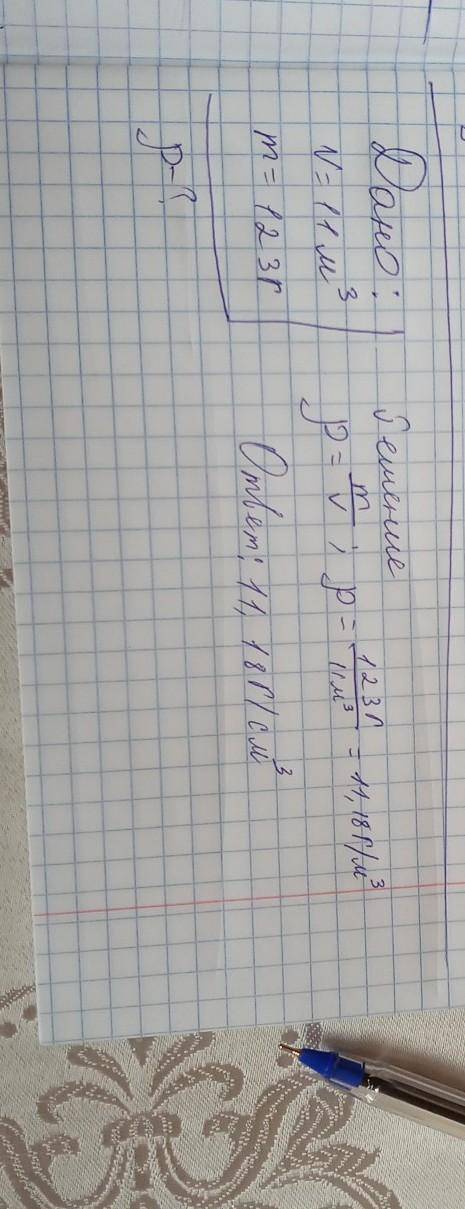 Дано:
V = 11 м³
m = 123 г
p - ?
Решение
p = m/V ; p = 123 г/11 м³ = 11,18 г/м³
Ответ: 11,18 г/см³